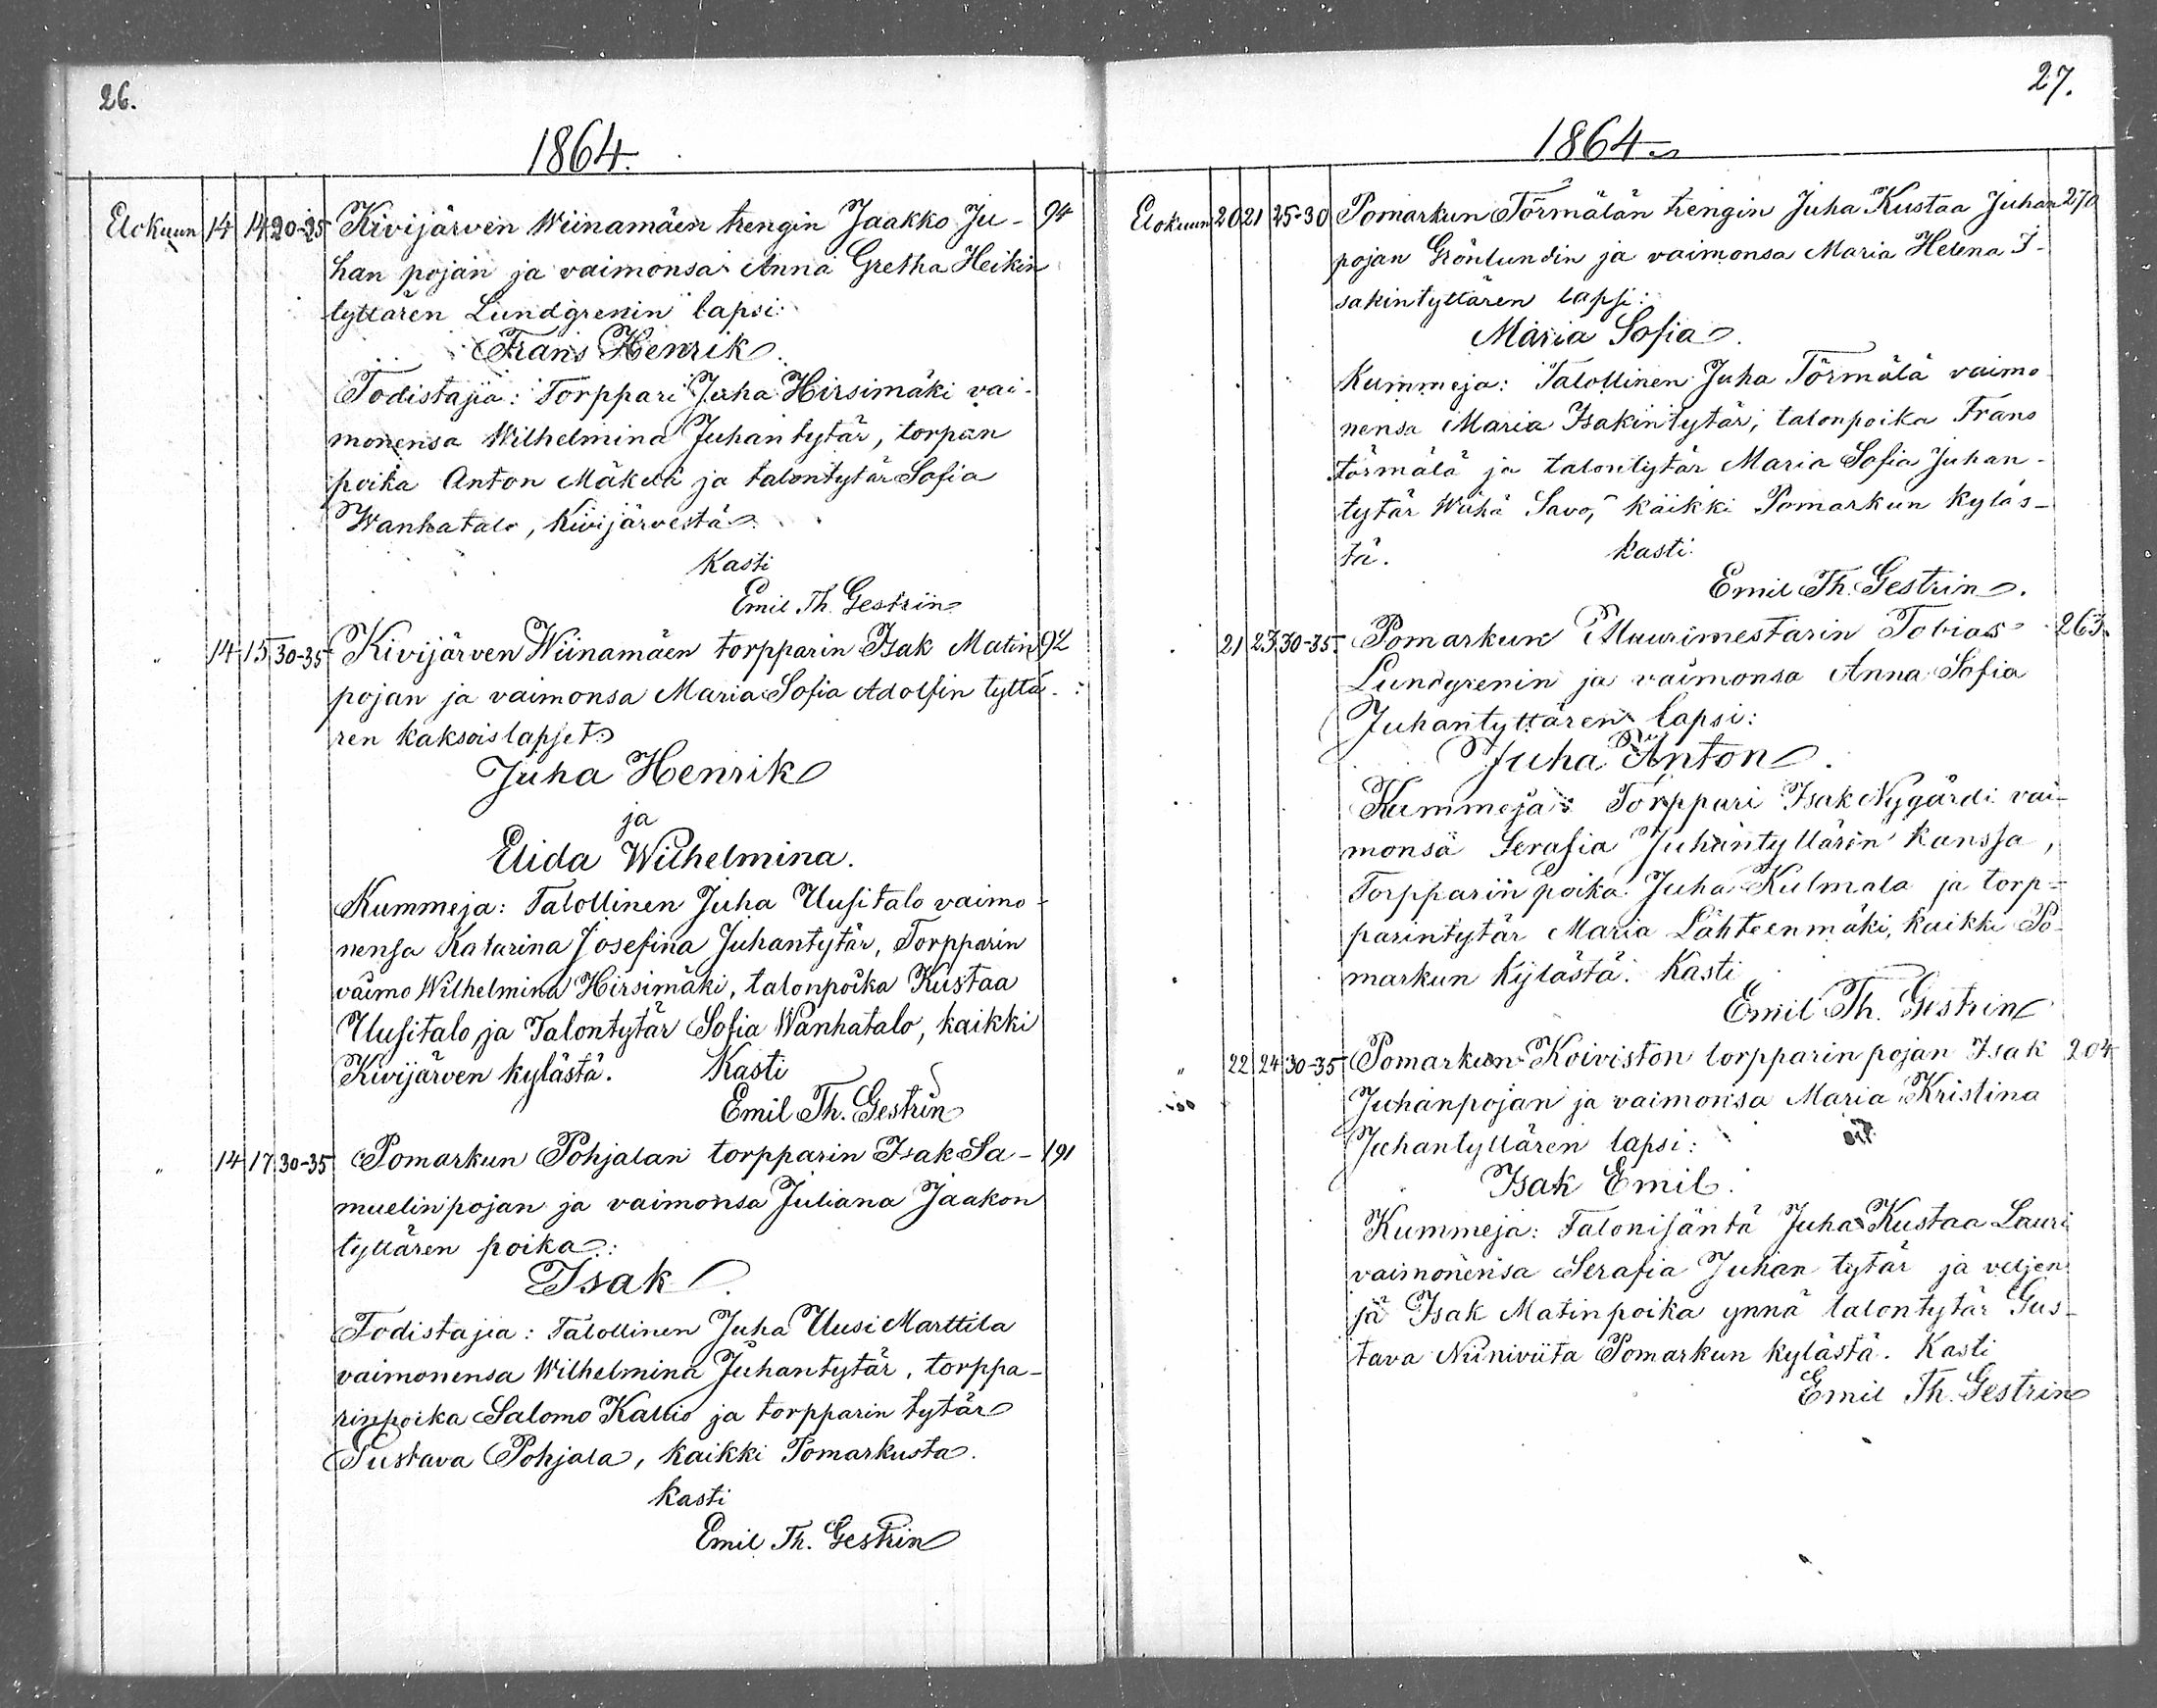 26.
1864.
Elokuun 14 14 20-25 Kivijärven Wiinamäen rengin Jaakko Ju- 94
han pojan ja vaimonsa Anna Gretha Heikin
tyttären Lundgrenin lapsi:
Frans Henrik.
Todistajia: Torppari Juha Hirsimäki vai-
monensa Wilhelmina Juhantytär, torpan
poika Anton Mäkelä ja talontytär Sofia
Wanhatalo, Kivijärvestä.
Kasti
Emil Th. Gestrin
" 14 15 30-35 Kivijärven Wiinamäen torpparin Isak Matin 92
pojan ja vaimonsa Maria Sofia Adolfin tyttä-
ren kaksoislapset:
Juha Henrik
ja
Elida Wilhelmina.
Kummeja: Talollinen Juha Uusitalo vaimo-
nensa Katarina Josefina Juhantytär, Torpparin
vaimo Wilhelmina Hirsimäki, talonpoika Kustaa
Uusitalo ja Talontytär Sofia Wanhatalo, kaikki
Kivijärven kylästä. Kasti
Emil Th. Gestrin
" 14 17 30-35 Pomarkun Pohjalan torpparin Isak Sa- 191
muelinpojan ja vaimonsa Juliana Jaakon
tyttären poika:
Isak.
Todistajia: Talollinen Juha Uusi Marttila
vaimonensa Wilhelmina Juhantytär, torppa-
rinpoika Salomo Kallio ja torpparin tytär
Gustava Pohjala, kaikki Pomarkusta.
Kasti
Emil Th. Gestrin
27.
1864.
Elokuun 20 21 25-30 Pomarkun Törmälän rengin Juha Kustaa Juhan 270
pojan Grönlundin ja vaimonsa Maria Helena I-
sakintyttären lapsi:
Maria Sofia.
Kummeja: Talollinen Juha Törmälä vaimo
nensa Maria Isakintytär, talonpoika Frans
Törmälä ja talontytär Maria Sofia Juhan-
tytär Wähä Savo, kaikki Pomarkun kyläs-
tä. kasti
Emil Th. Gestrin.
21 23 30-35 Pomarkun Muurimestarin Tobias 263
Lundgrenin ja vaimonsa Anna Sofia
Juhantyttären lapsi:
Juha Anton.
Kummeja: Torppari Isak Nygårdi vai-
monsa Serafia Juhantyttärin kanssa,
Torpparin poika Juha Kulmala ja torp-
parintytär Maria Lähteenmäki, kaikki Po-
markun kylästä. Kasti
Emil Th. Gestrin
" 22 24 30-35 Pomarkun Koiviston torpparin pojan Isak 204
Juhanpojan ja vaimonsa Maria Kristina
Juhantyttären lapsi:
Isak Emil.
Kummeja: Talonisäntä Juha Kustaa Lauri
vaimonensa Serafia Juhan tytär ja veljen
sä Isak Matinpoika ynnä talontytär Gus-
tava Niinivüta Pomarkun kylästä. Kasti
Emil Th. Gestrin